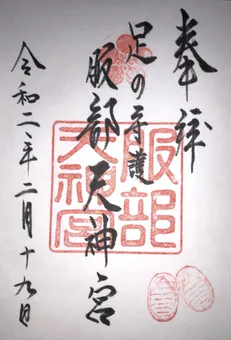 奉拝
足の守護
服部天神宮
服部
天神宮
令和二年二月十九日